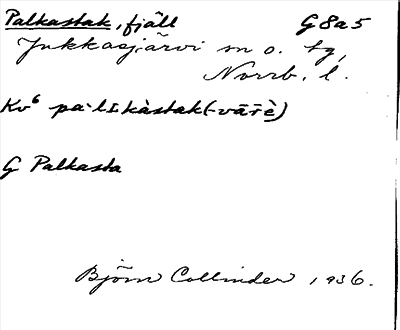 Palkastak, fjäll G8a5
Jukkasjärvi sn o. tg,
Norrb. l.
Kv⁶ pa·lɪkàstak(-vār̄è)
G Palkasta
Björn Collinder 1936.